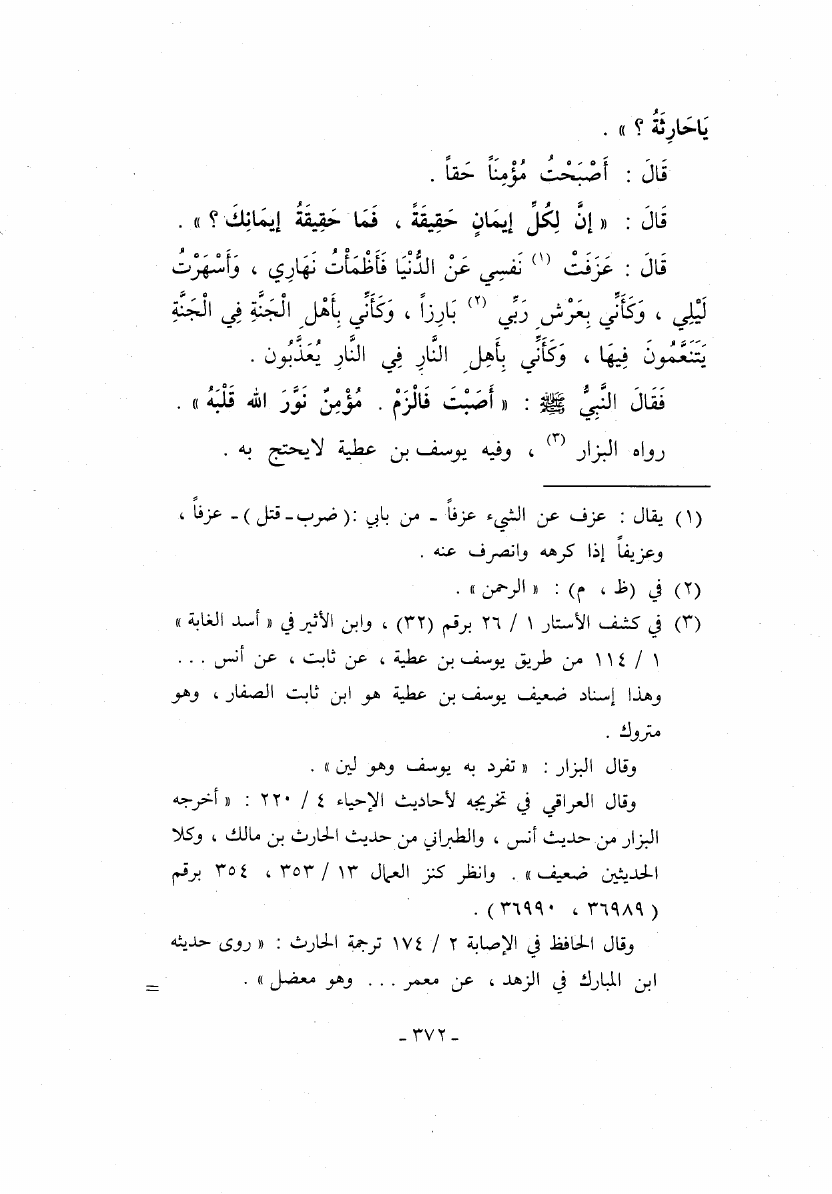 يَاحَارِثَةُ ؟ » .
قَالَ : أَصْبَحْتُ مُؤْمِنَاً حَقاً .
قَالَ : « إِنَّ لِكُلِّ إِيمَانٍ حَقِيقَةً ، فَمَا حَقِيقَةُ إِيمَانِكَ ؟ » .
قَالَ : عَزَفَتْ (١) نَفسِي عَنْ الدُّنْيَا فَأَظْمَأْتُ نَهَارِي ، وَأَسْهَرْتُ
لَيْلِي ، وَكَأَنِّي بِعَرْشِ رَبِّي (٢) بَارِزاً ، وَكَأَنِّي بِأَهْلِ الْجَنَّةِ فِي الْجَنَّةِ
يَتَنَعَّمُونَ فِيهَا ، وَكَأَنِّي بِأَهلِ النَّارِ فِي النَّارِ يُعَذَّبُون .
فَقَالَ النَّبِيُّ ﷺ : « أَصَبْتَ فَالْزَمْ . مُؤْمِنٌ نَوَّرَ الله قَلْبَهُ » .
رواه البزار (٣) ، وفيه يوسف بن عطية لايحتج به .
(١) يقال : عزف عن الشيء عزفاً - من بابي :( ضرب - قتل ) - عزفاً ،
وعزيفاً إذا كرهه وانصرف عنه .
(٢) في (ظ ، م) : « الرحمن » .
(٣) في كشف الأستار ١ / ٢٦ برقم (٣٢) ، وابن الأثير في « أسد الغابة »
١ / ١١٤ من طريق يوسف بن عطية ، عن ثابت ، عن أنس ...
وهذا إسناد ضعيف يوسف بن عطية هو ابن ثابت الصفار ، وهو
متروك .
وقال البزار : « تفرد به يوسف وهو لين » .
وقال العراقي في تخريجه لأحاديث الإحياء ٤ / ٢٢٠ : « أخرجه
البزار من حديث أنس ، والطبراني من حديث الحارث بن مالك ، وكلا
الحديثين ضعيف » . وانظر كنز العمال ١٣ / ٣٥٣ ، ٣٥٤ برقم
( ٣٦٩٨٩ ، ٣٦٩٩٠ ) .
وقال الحافظ في الإصابة ٢ / ١٧٤ ترجمة الحارث : « روى حديثه
ابن المبارك في الزهد ، عن معمر ... وهو معضل » . =
- ٣٧٢ -